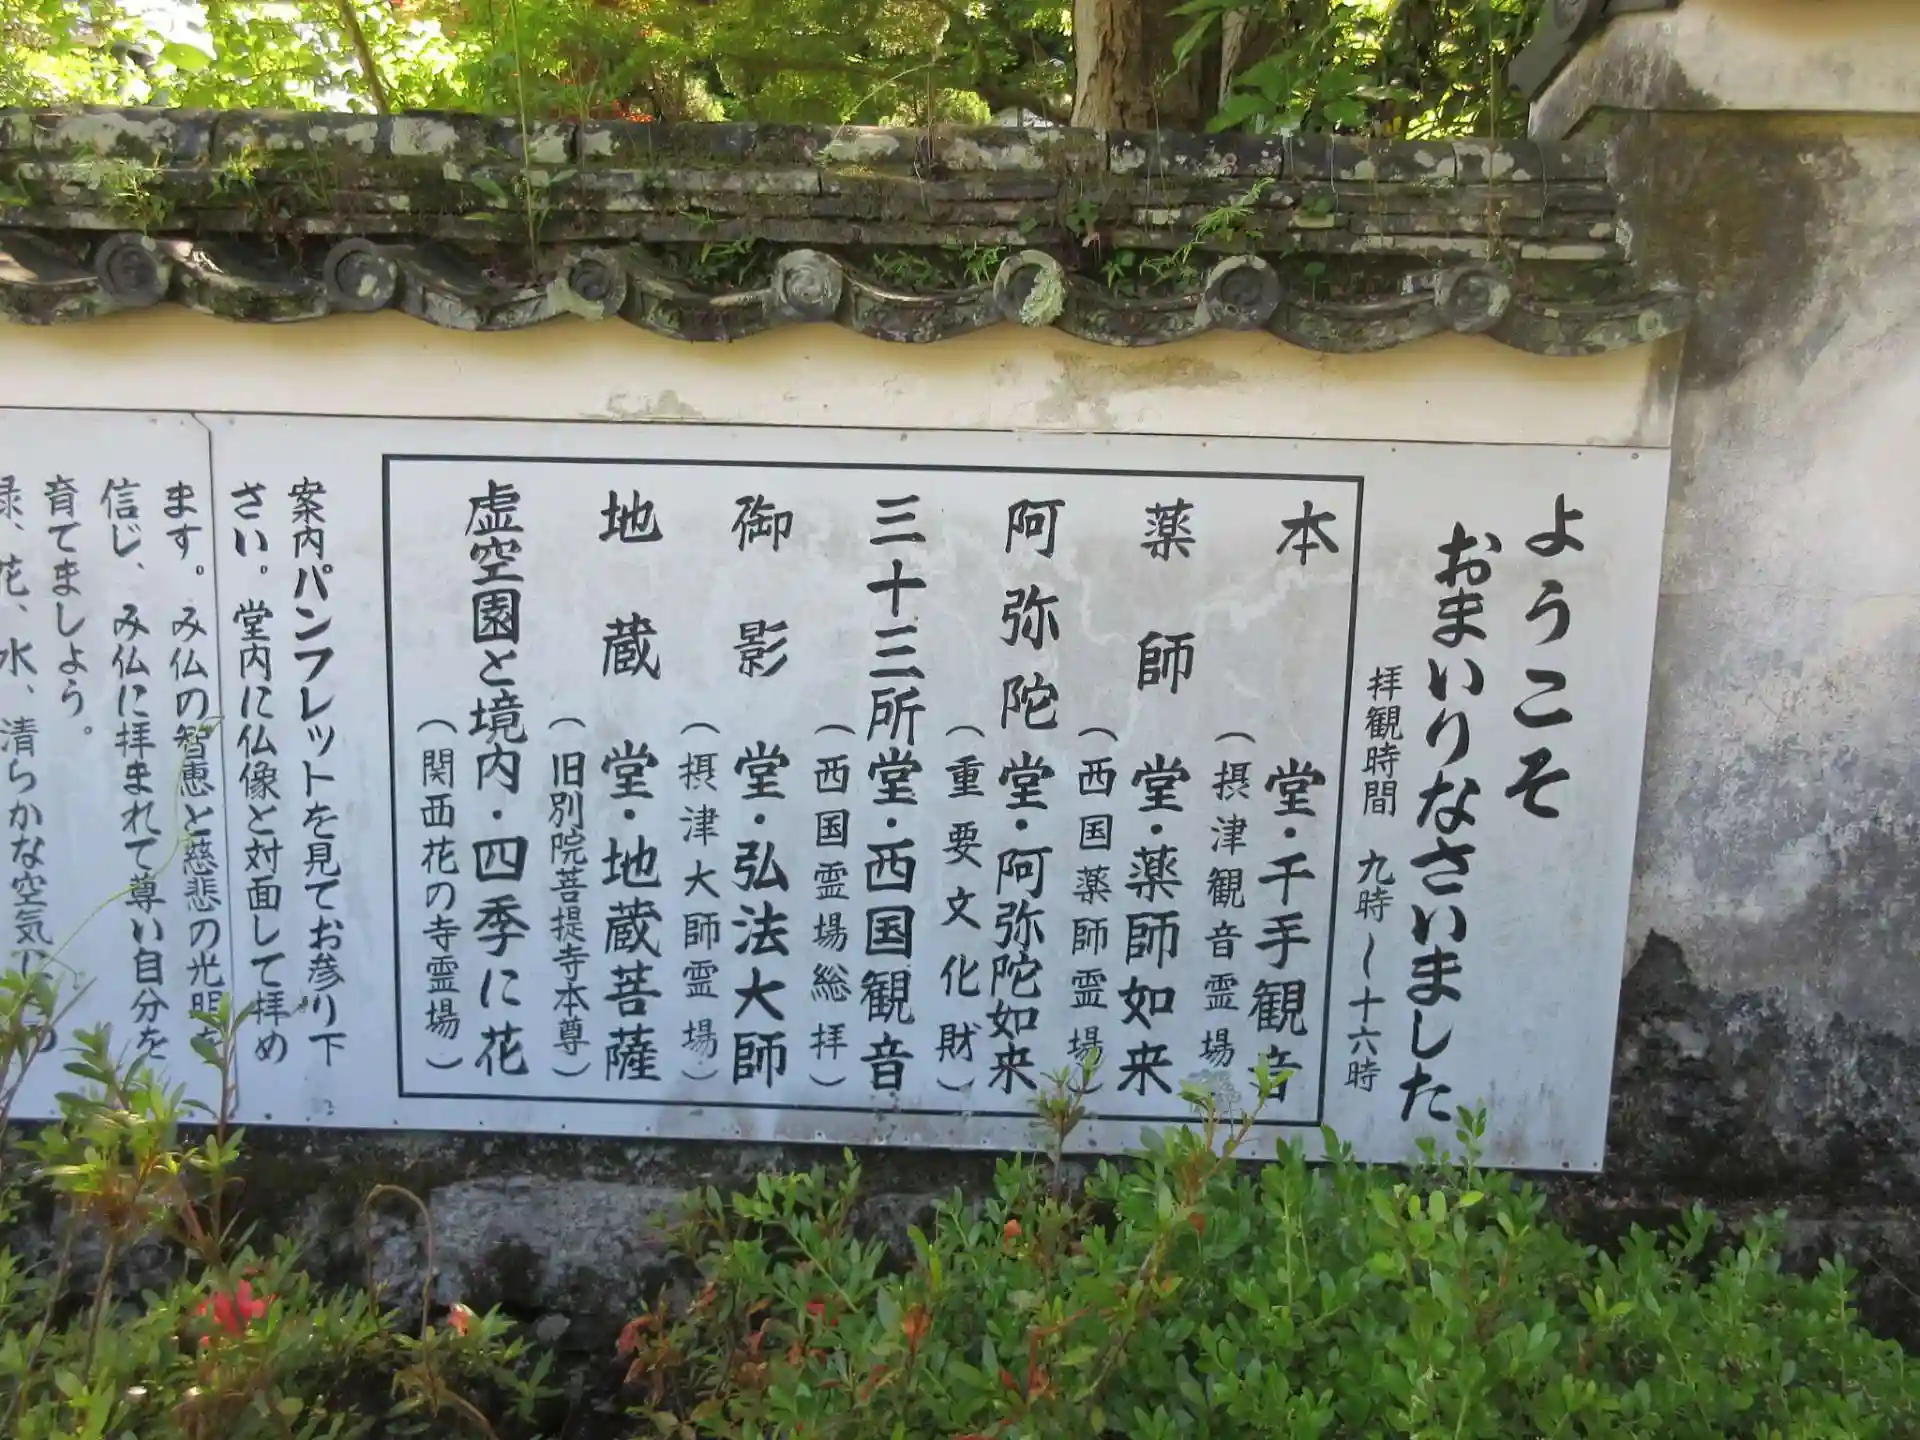 ようこそ
おまいりなさいました
拝観時間 九時～十六時
本堂・千手観音
(摂津観音霊場)
薬師堂・薬師如来
(西国薬師霊場)
阿弥陀堂・阿弥陀如来
(重要文化財)
三十三所堂・西国観音
(西国霊場総拝)
御影堂・弘法大師
(摂津大師霊場)
地蔵堂・地蔵菩薩
(旧別院菩提寺本尊)
虚空園と境内・四季に花
(関西花の寺霊場)
案内パンフレットを見てお参り下
さい。堂内に仏像と対面して拝め
ます。み仏の智恵と慈悲の光明を
信じ、み仏に拝まれて尊い自分を
育てましょう。
緑、花、水、清らかな空気